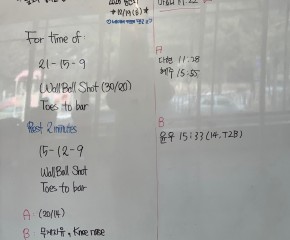 10/19(금)
For time of:
21-15-9
Wall Ball Shot (30/20)
Toes to bar
Rest 2 minutes
15-12-9
Wall Ball Shot
Toes to bar
A: (20/14)
B: 무게자유, Knee raise
A
11:28
15:55
B
윤우 15:33 (14, T2B)